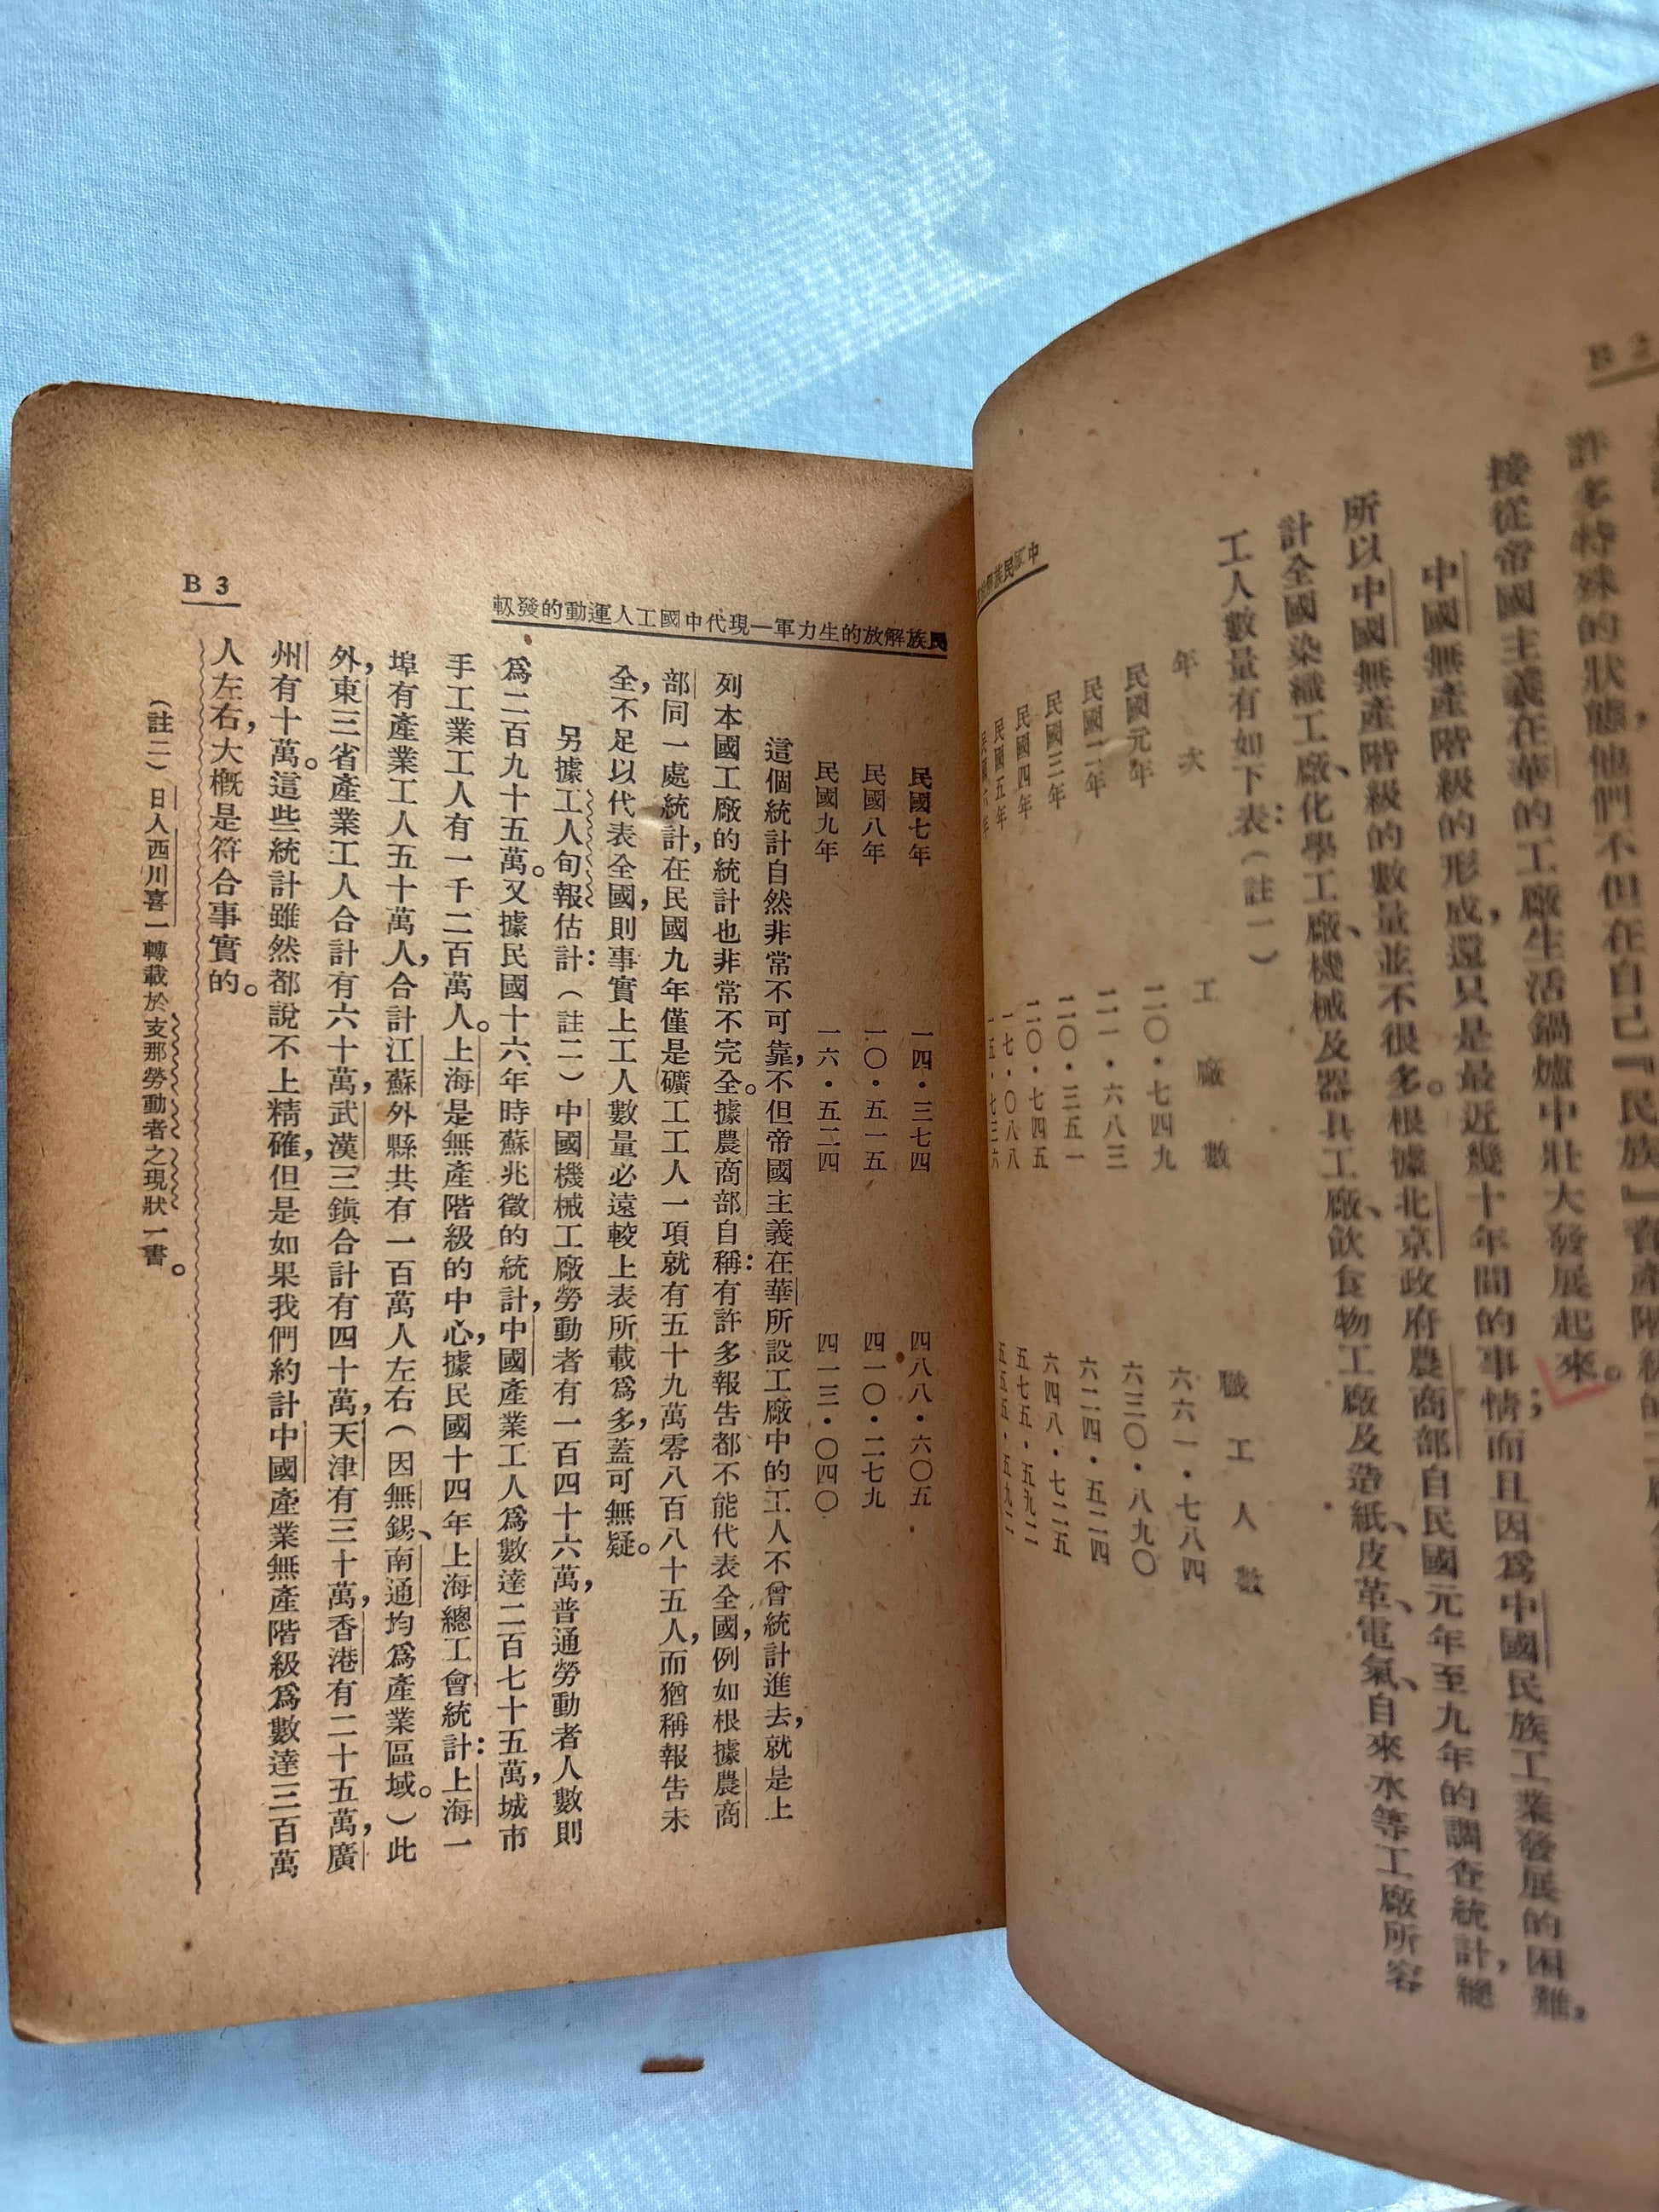 B 2
許多特殊的狀態，他們不但在自己『民族』資產階級的工廠
接從帝國主義在華的工廠生活鍋爐中壯大發展起來。
中國無產階級的形成，還只是最近幾十年間的事情；而且因爲中國民族工業發展的困難，
所以中國無產階級的數量並不很多。根據北京政府農商部自民國元年至九年的調查統計，總
計全國染織工廠、化學工廠、機械及器具工廠、飲食物工廠及造紙、皮革、電氣、自來水等工廠所容
工人數量有如下表：（註一）
年次 工廠數 職工人數
民國元年 二〇·七四九 六六一·七八四
民國二年 二一·六八三 六三〇·八九〇
民國三年 二〇·三五一 六二四·五二四
民國四年 二〇·七四五 六四八·七二五
民國五年 一七·〇八八 五七五·五九二
民國六年 一五·七三六 五五五·五九二
民族解放的生力軍—現代中國工人運動的發軔
B 3
民國七年 一四·三七四 四八八·六〇五
民國八年 一〇·五一五 四一〇·二七九
民國九年 一六·五二四 四一三·〇四〇
這個統計自然非常不可靠，不但帝國主義在華所設工廠中的工人不曾統計進去，就是上
列本國工廠的統計也非常不完全。據農商部自稱：有許多報告都不能代表全國，例如根據農商
部同一處統計，在民國九年僅是礦工工人一項就有五十九萬零八百八十五人，而猶稱報告未
全，不足以代表全國，則事實上工人數量必遠較上表所載爲多，蓋可無疑。
另據工人旬報估計：（註二）中國機械工廠勞動者有一百四十六萬，普通勞動者人數則
爲二百九十五萬。又據民國十六年時蘇兆徵的統計，中國產業工人爲數達二百七十五萬，城市
手工業工人有一千二百萬人。上海是無產階級的中心，據民國十四年上海總工會統計：上海一
埠有產業工人五十萬人，合計江蘇外縣共有一百萬人左右（因無錫、南通均爲產業區域。）此
外，東三省產業工人合計有六十萬，武漢三鎮合計有四十萬，天津有三十萬，香港有二十五萬，廣
州有十萬。這些統計雖然都說不上精確，但是如果我們約計中國產業無產階級爲數達三百萬
人左右，大概是符合事實的。
（註二）日人西川喜一轉載於支那勞動者之現狀一書。